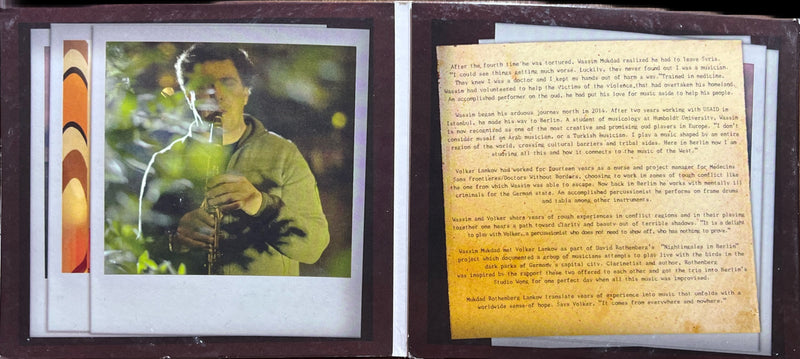 After the fourth time he was tortured, Wassim Mukdad realized he had to leave Syria.
"I could see things getting much worse. Luckily, they never found out I was a musician.
They knew I was a doctor and I kept my hands out of harm's way." Trained in medicine,
Wassim had volunteered to help the victims of the violence that had overtaken his homeland.
An accomplished performer on the oud, he had put his love for music aside to help his people.
Wassim began his arduous journey north in 2014. After two years working with USAID in
Istanbul, he made his way to Berlin. A student of musicology at Humboldt University, Wassim
is now recognized as one of the most creative and promising oud players in Europe. "I don't
consider myself an Arab musician, or a Turkish musician. I play a music shaped by an entire
region of the world, crossing cultural barriers and tribal sides. Here in Berlin now I am
studying all this and how it connects to the music of the West."
Volker Lankow had worked for fourteen years as a nurse and project manager for Medecins
Sans Frontieres/Doctors Without Borders, choosing to work in zones of tough conflict like
the one from which Wassim was able to escape. Now back in Berlin he works with mentally ill
criminals for the German state. An accomplished percussionist he performs on frame drums
and tabla among other instruments.
Wassim and Volker share years of rough experiences in conflict regions and in their playing
together one hears a path toward clarity and beauty out of terrible shadows. "It is a delight
to play with Volker, a percussionist who does not need to show off, who has nothing to prove."
Wassim Mukdad met Volker Lankow as part of David Rothenberg's "Nightingales in Berlin"
project which documented a group of musicians attempts to play live with the birds in the
dark parks of Germany's capital city. Clarinetist and author, Rothenberg
was inspired by the rapport these two offered to each other and got the trio into Berlin's
Studio Wong for one perfect day when all this music was improvised.
Mukdad Rothenberg Lankow translate years of experience into music that unfolds with a
worldwide sense of hope. Says Volker, "It comes from everywhere and nowhere."